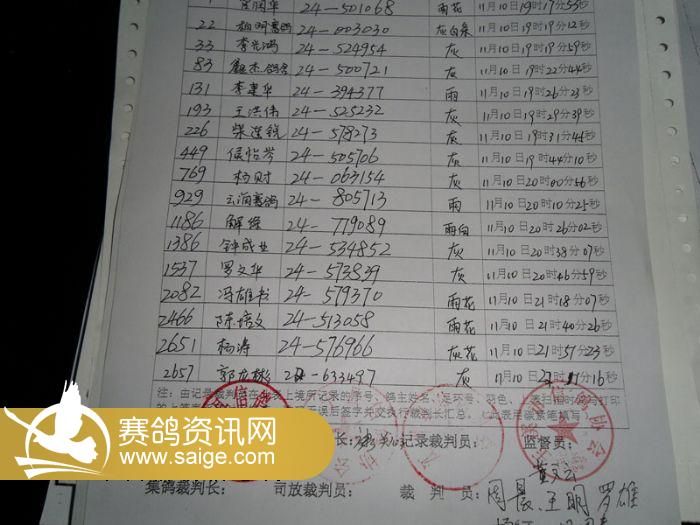 24-501068 雨花 11月10日19时17分53秒
22 24-003030 灰白条 11月10日19时19分12秒
33 李光鸿 24-524954 灰 11月10日19时19分59秒
83 24-500721 灰 11月10日19时22分44秒
131 李建华 24-394377 雨 11月10日19时26分23秒
193 王洪伟 24-525232 灰 11月10日19时29分39秒
226 柴连锐 24-578273 灰 11月10日19时31分45秒
449 侯怡岑 24-505706 灰 11月10日19时44分10秒
769 杨财 24-063154 灰 11月10日20时00分56秒
929 云南赛鸽 24-805713 雨 11月10日20时10分25秒
1186 解 24-779089 雨白 11月10日20时26分02秒
1386 钟成业 24-534852 灰 11月10日20时38分07秒
1537 罗文华 24-573839 灰 11月10日20时46分59秒
2082 冯雄书 24-579370 雨花 11月10日21时18分07秒
2466 陈培文 24-513058 雨花 11月10日21时40分26秒
2651 杨涛 24-576966 灰花 11月10日21时57分23秒
2657 郭龙彬 24-633497 灰 11月10日 分16秒
注：由记录裁判员在 表上填所记录的序号、鸽主姓名、足环号、羽色、
签字并交执行裁判长汇总。
长： 记录裁判员： 监督员：
集鸽裁判长： 司放裁判员： 裁 判 员： 周晨、王明 罗雄
赛鸽资讯网
www.saige.com